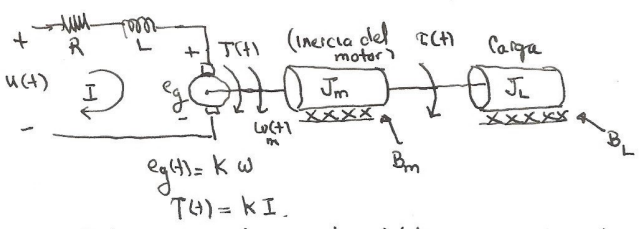 + R L + T(t) (Inercia del motor) τ(t) Carga
u(t) I eg Jm JL
- - ω(t) m
XXXX XXXXX
Bm BL
eg(t) = K ω
T(t) = K I.